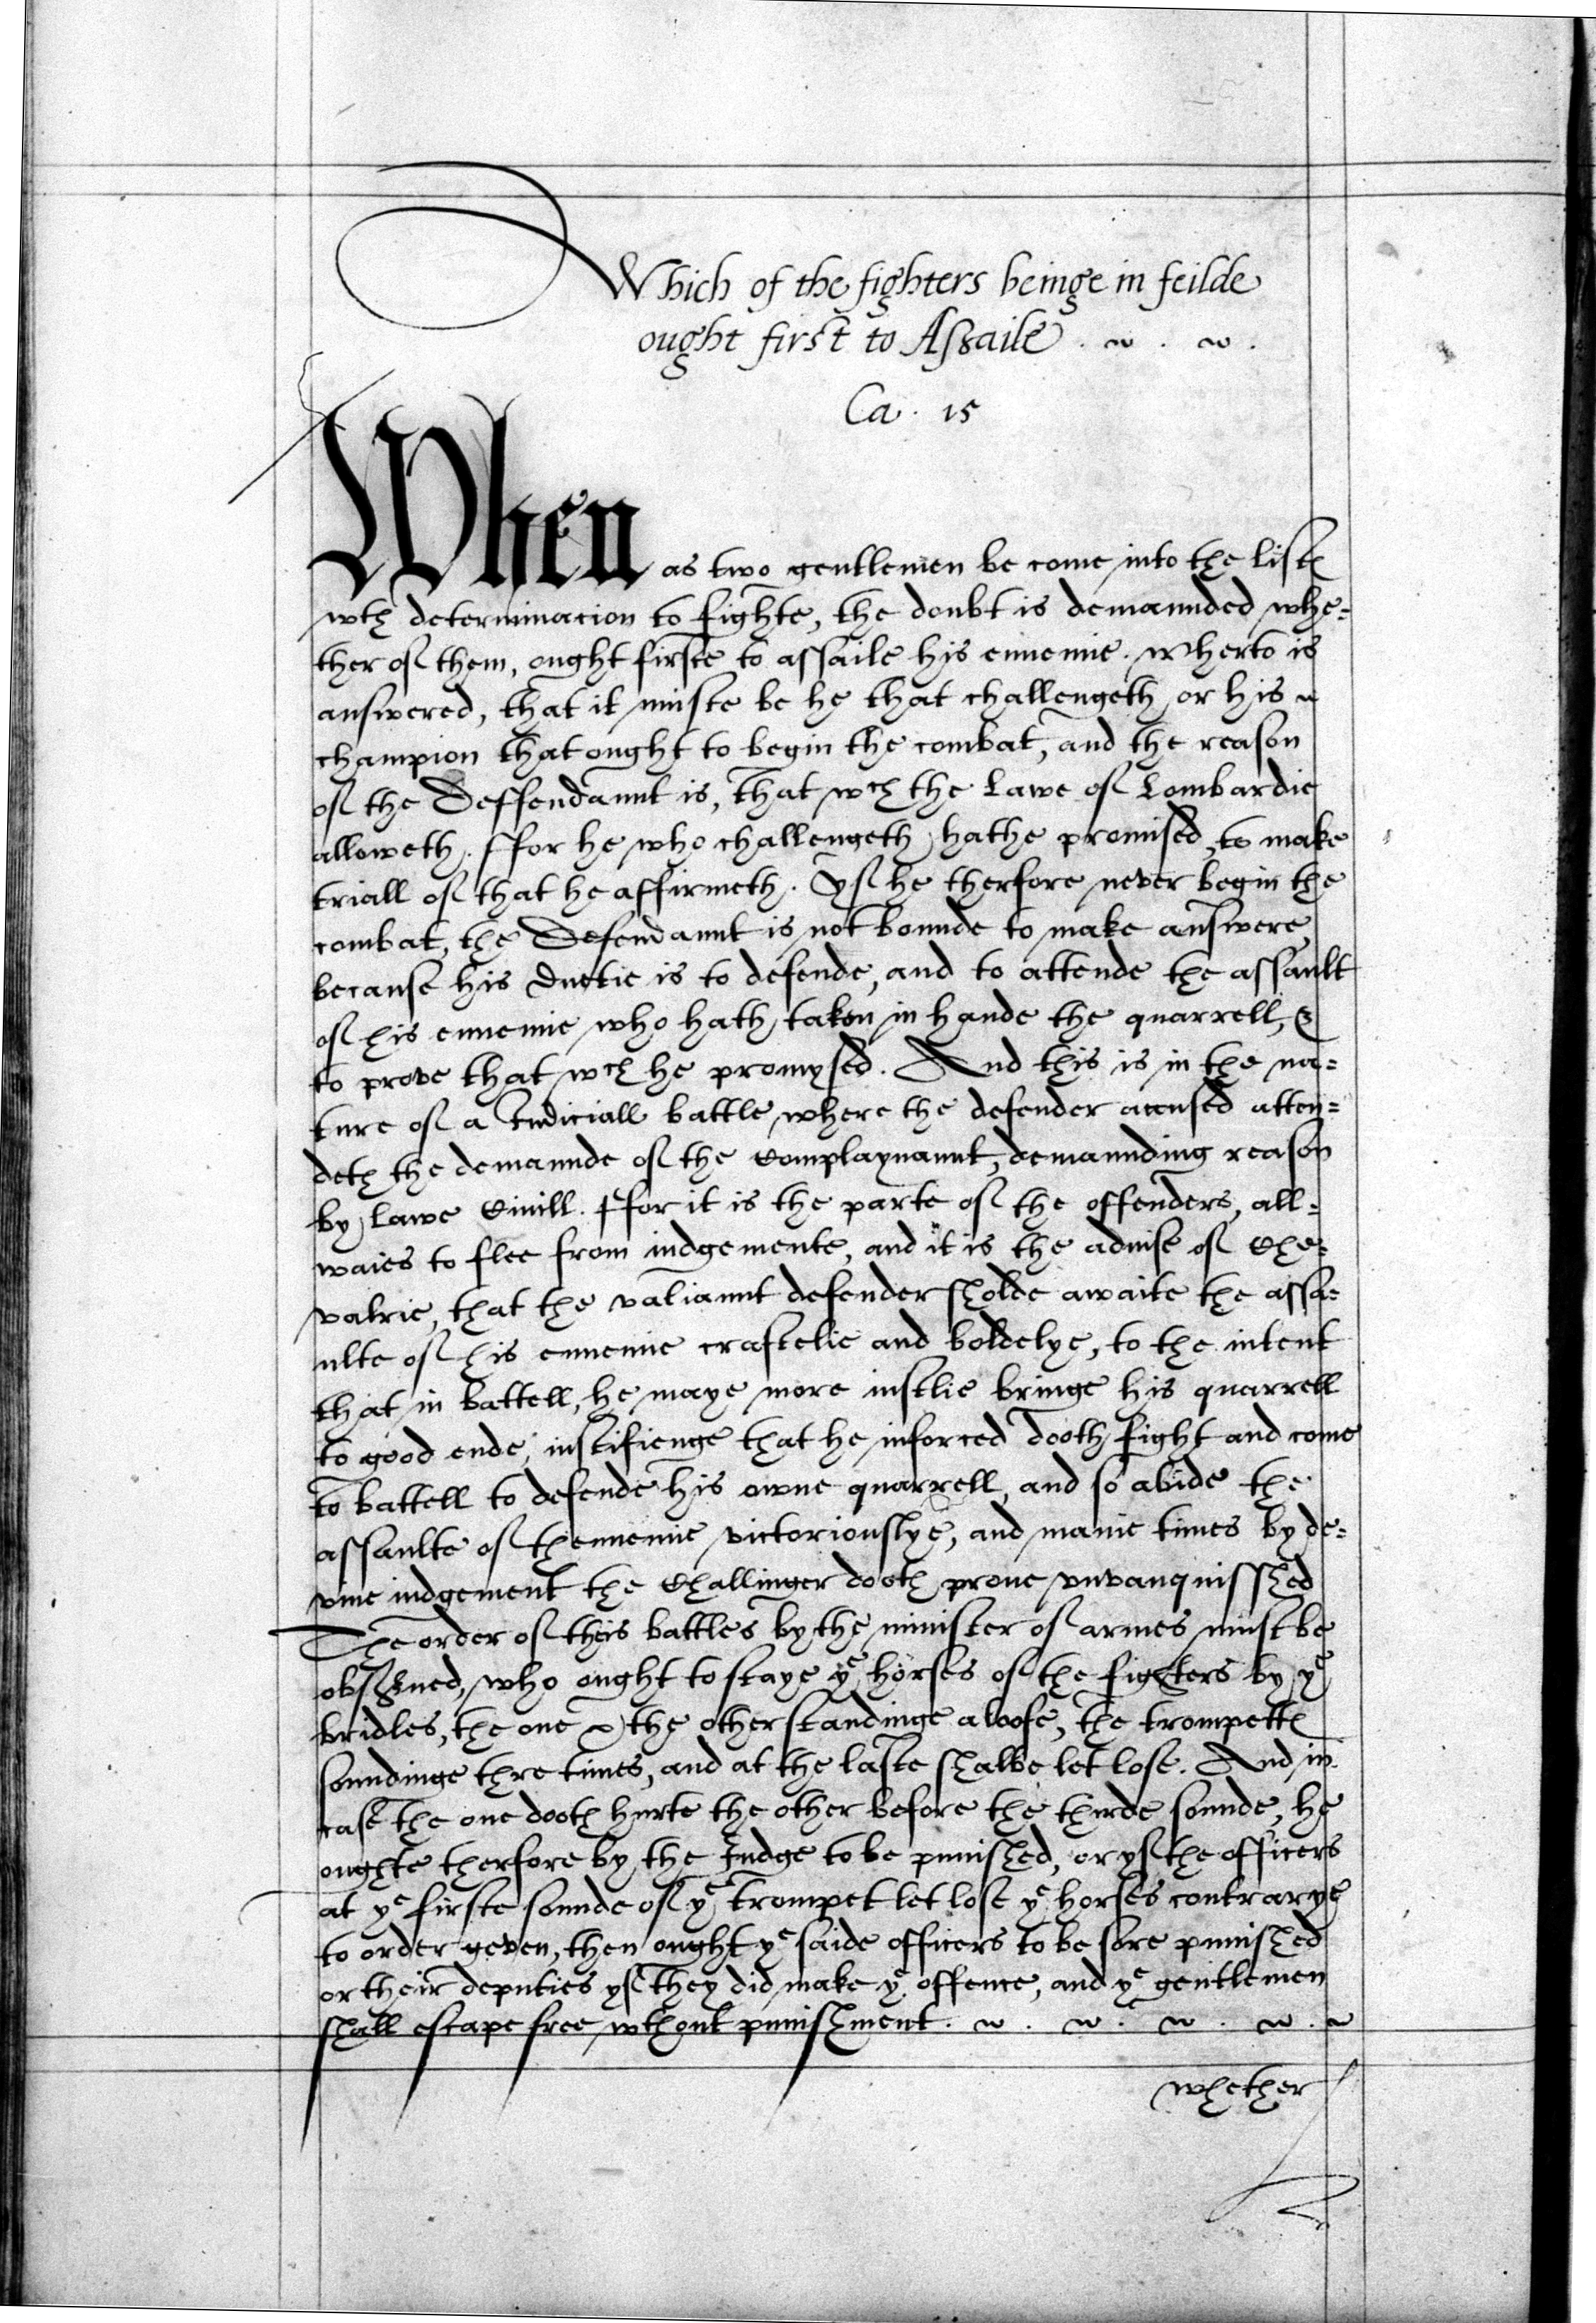 Which of the fighters beinge in feilde
ought first to Assaile
Ca. 15
When as two gentlemen be come into the listes
wth determinacion to fighte, the doubt is demaunded whe=
ther of them, ought firste to assaile his ennemie. Wherto is
answered, that it muste be he that challengeth or his
champion that ought to begin the combat, and the reason
of the Deffendaunt is, that wch the Lawe of Lombardie
alloweth. Ffor he who challengeth hathe promised, to make
triall of that he affirmeth. Yf he therfore never begin the
combat, the Defendaunt is not bounde to make answere,
because his duetie is to defende, and to attende the assault
of his ennemie who hath taken in hande the quarrell, &
to prove that wch he promysed. And this is in the na=
ture of a Iudiciall battle, where the defender accused atten=
deth the demaunde of the Complaynaunt, demaunding reason
by Lawe Civill. Ffor it is the parte of the offenders, all=
waies to flee from iudgemente, and it is the aduise of Che=
valrie, that the valiaunt defender sholde awaite the assa=
ulte of his ennemie craftelie and boldelye, to the intent
that in battell, he maye more iustlie bringe his quarrell
to good ende, iustifienge that he inforced dooth fight and come
to battell to defende his owne quarrell, and so abide the
assaulte of thennemie victoriouslye, and manie times by de=
vine iudgement the Challinger dooth prove vnvanquisshed
The order of theis battles by the minister of armes must be
observed, who ought to staye ye horses of the fighters by ye
bridles, the one & the other standinge aloofe, the trompettes
soundinge thre times, and at the laste shalbe let lose. And in
case the one dooth hurte the other before the thirde sounde, he
oughte therfore by the Iudge to be punished, or yf the officers
at ye firste sounde of ye trompet let lose ye horses contrarye
to order geven, then ought ye saide officers to be sore punished
or their deputies yf they did make ye offence, and ye gentlemen
shall escape free wthout punishment.
whether